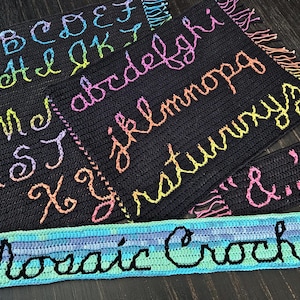 ABCDEF
HIJKL
MN
ST
XY
abcdefghi
jklmnopq
rstuvwxyz
&
Mosaic Croch